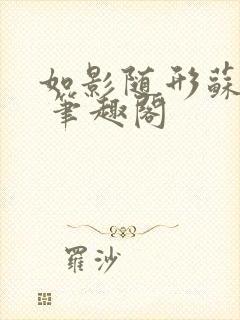 如影随形蘇
筆趣閣
羅沙